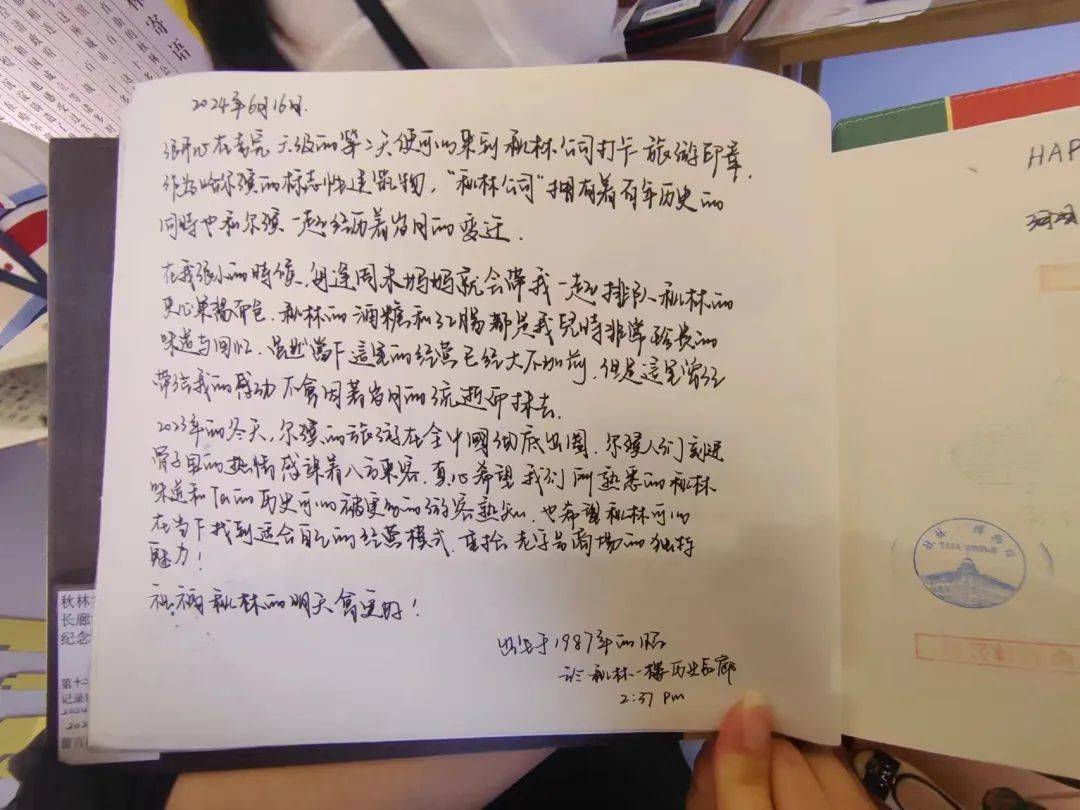 寄语
2024年6月16日.
很开心在考完六级的第二天便可以来到秋林公司打卡旅游印章,
作为哈尔滨的标志性建筑物,"秋林公司"拥有着百年历史的
同時也和尔滨一起经历着岁月的变迁.
在我很小的時候,每逢周末妈妈就会带我一起排队秋林的
夹心果酱面包.秋林的酒糖和红腸都是我兒時非常珍贵的
味道与回忆.虽然當下這里的经营已经大不如前,但是這里曾经
带给我的感动不會因着岁月的流逝而抹去.
2023年的冬天,尔滨的旅游在全中國彻底出圈.尔滨人们刻进
骨子里的热情感染着八方來客.真心希望我们所熟悉的秋林
味道和Ta的历史可以被更多的游客熟知.也希望秋林可以
在当下找到适合自己的经营模式.重拾老字号商場的独特
魅力!
祝福秋林的明天會更好!
出生于1987年的
於秋林一樓历史長廊
2:37 pm
HAP
秋林
长廊
纪念
第十二
记录
2024
202
留言